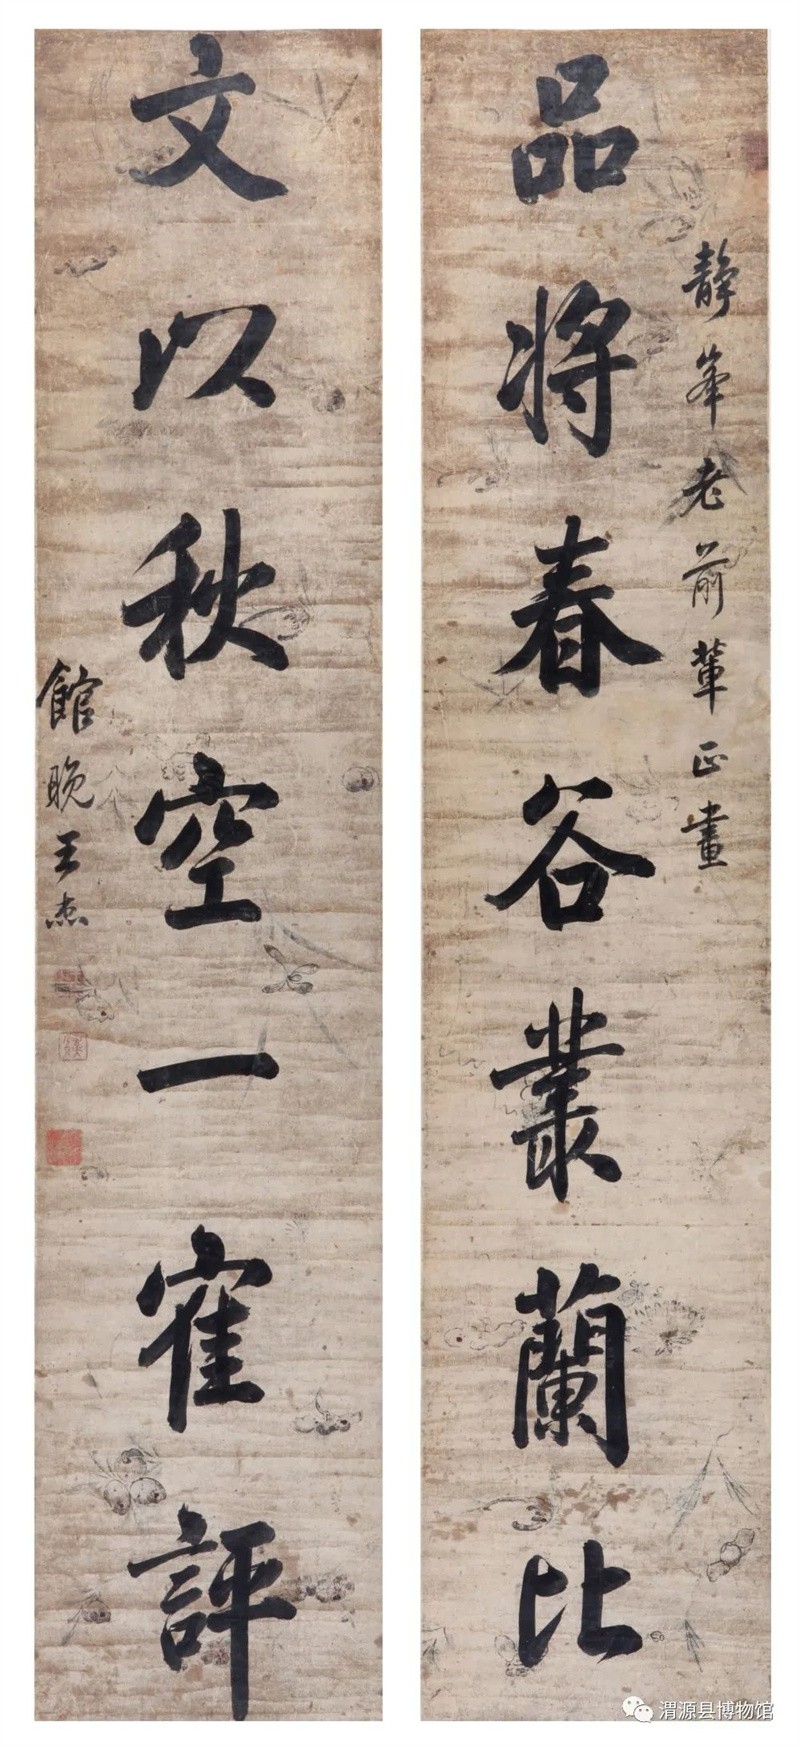 静峯老前輩正畫
品將春谷叢蘭比
文以秋空一隺評
館晚王杰
渭源县博物馆